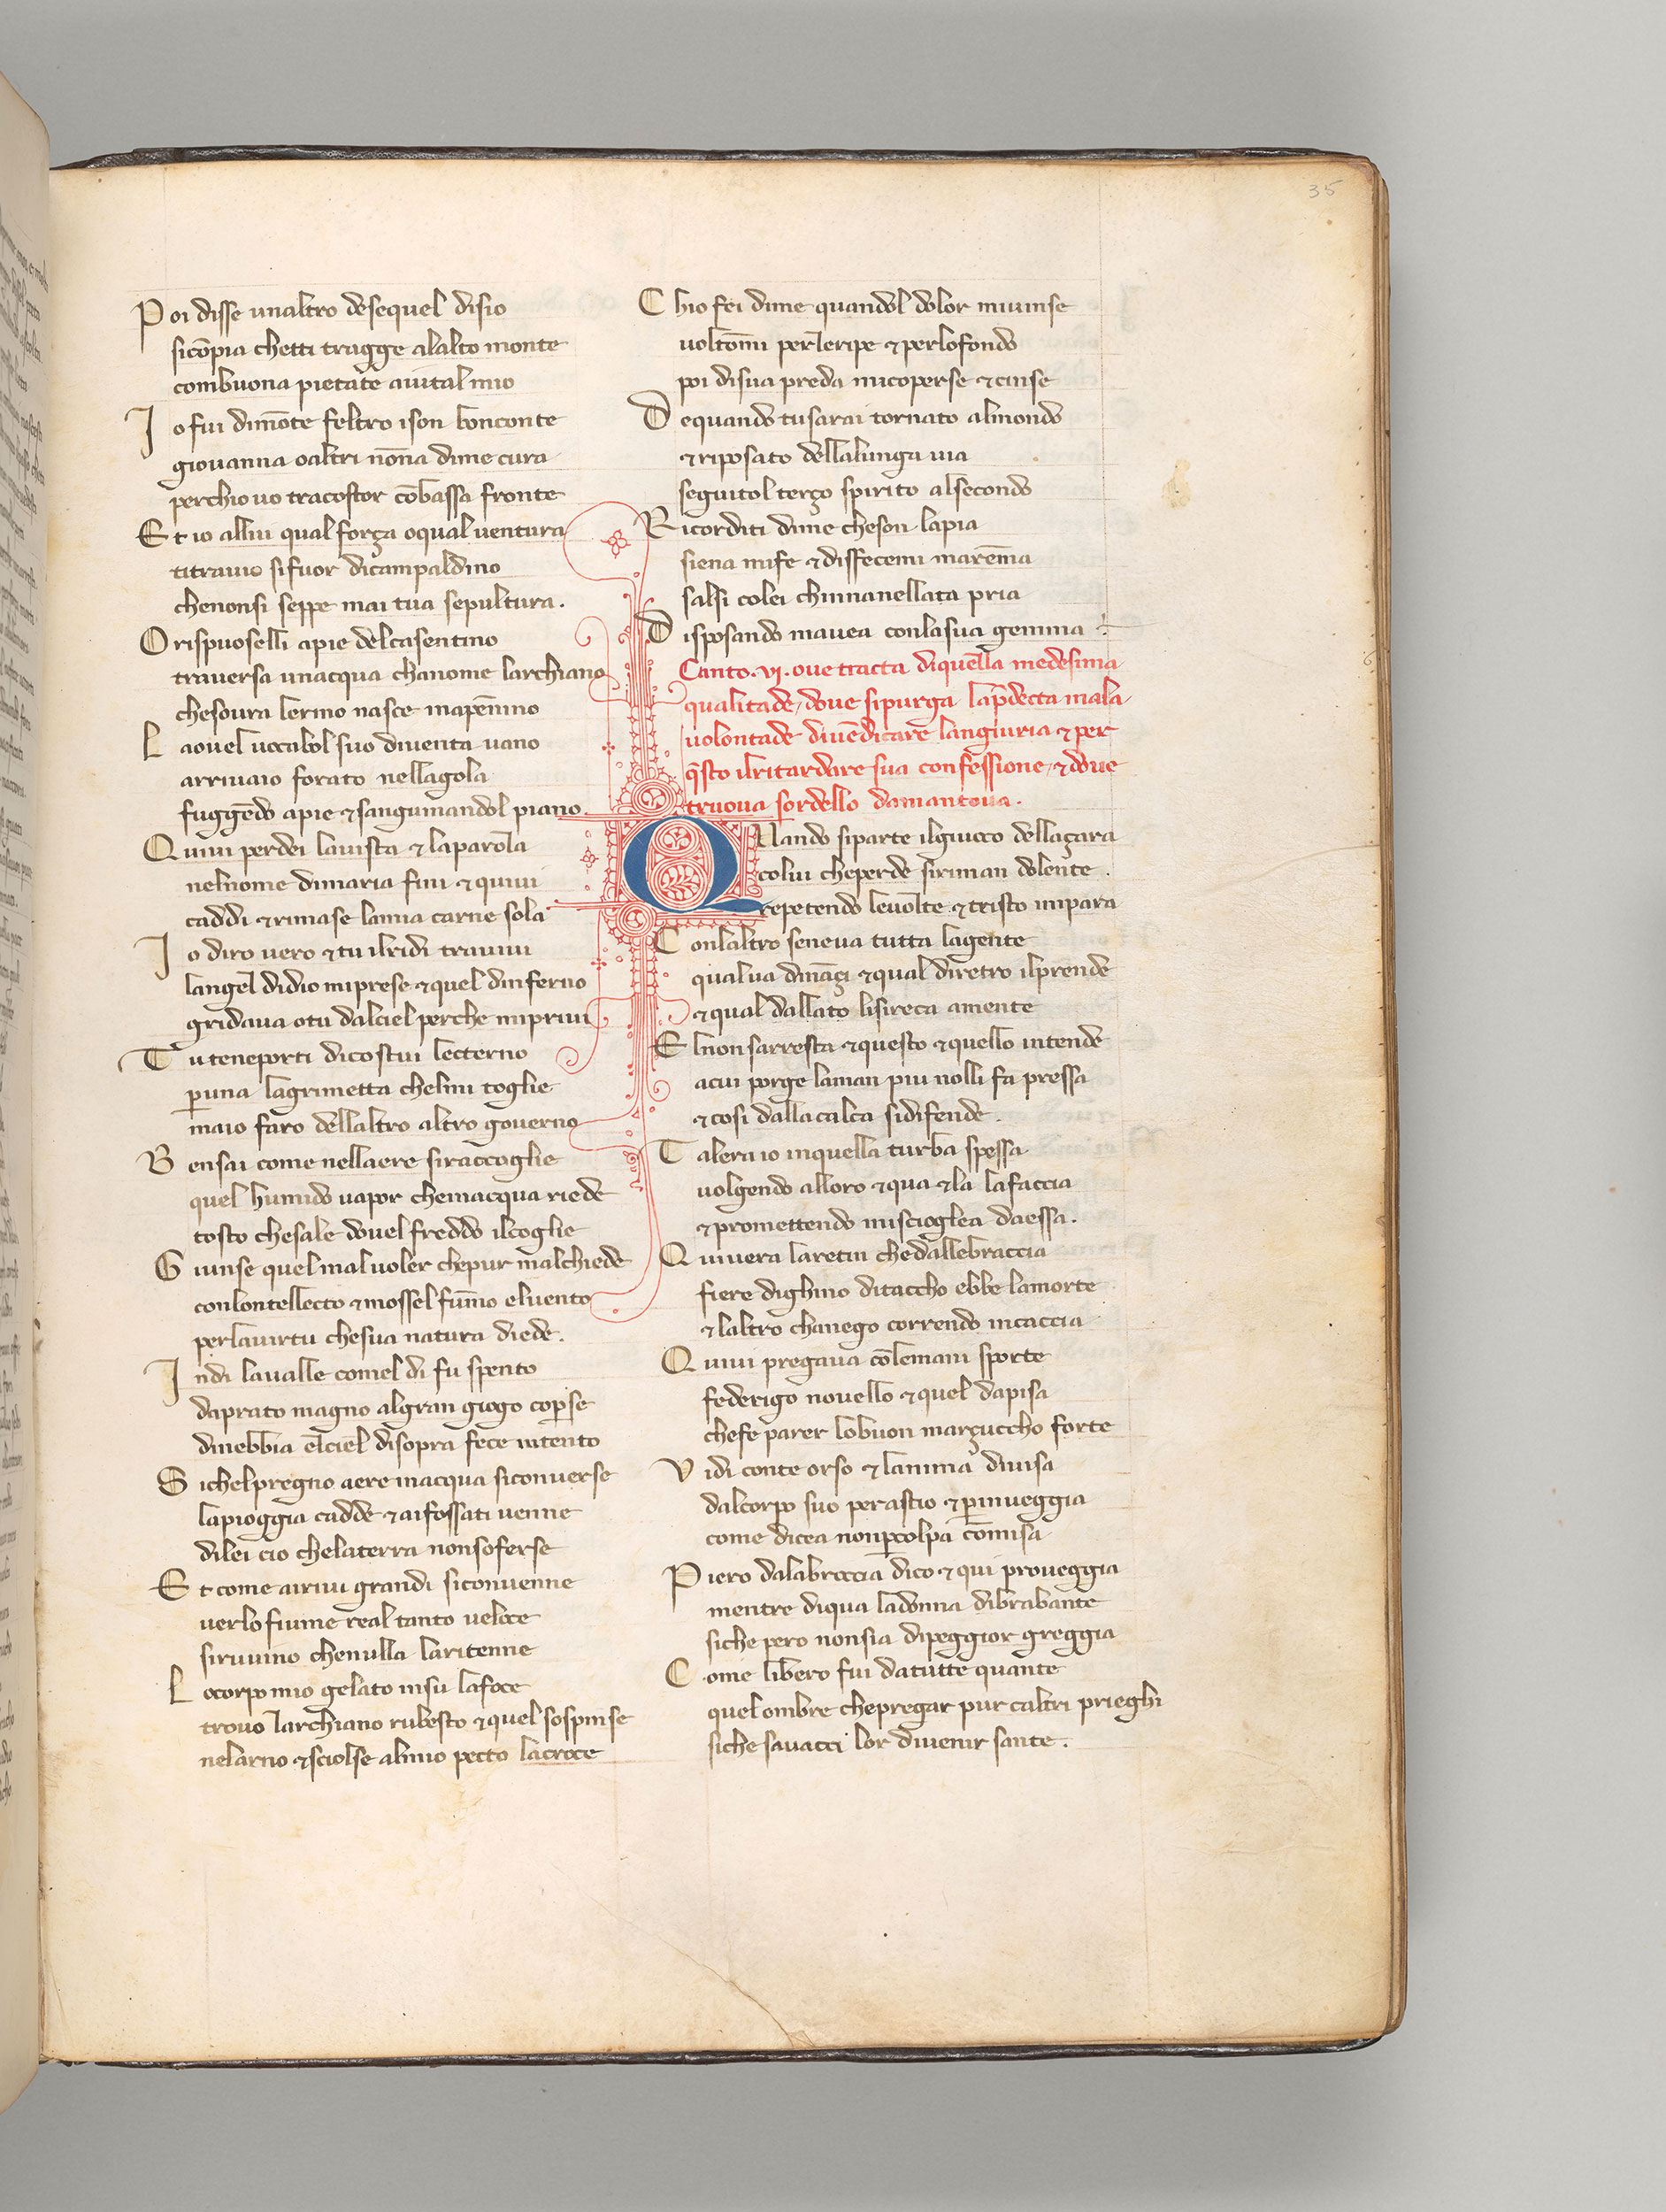 35
Poi disse unaltro desequel disio
sicōpia chetti tragge alalto monte
combuona pietate aiutal mio
Io fui dimōte feltro ison bonconte
giouanna oaltri nōna dime cura
perchio uo tracostor cōbassa fronte
Et io allui qual força oqual uentura
titrauio sifuor dicampaldino
chenonsi seppe mai tua sepultura.
O rispuoselli apie delcasentino
trauersa unacqua chanome larchiano
chesoura lermo nasce inapēnino
Laouel uocabol suo diuenta uano
arriuaio forato nellagola
fuggēdo apie & sanguinandol piano.
Quiui perdei lauista & laparola
nelnome dimaria fini & quiui
caddi & rimase lamia carne sola
Io diro uero & tu ilridi trauiui
langel didio miprese & quel dinferno
gridaua otu dalciel perche mipriui
Tu teneporti dicostui lecterno
puna lagrimetta chelmi toglie
maio faro dellaltro altro gouerno
Bensai come nellaere siraccoglie
quel humido uapor cheinacqua riede
tosto chesale douel freddo ilcoglie
Giunse quel maluoler chepur malchiede
conlontellecto & mossel fūmo eluento
perlauirtu chesua natura diede.
Indi laualle comel di fu spento
daprato magno algran giogo copse
dinebbia elciel disopra fece intento
Sichelpregno aere inacqua siconuerse
lapioggia cadde & aifossati uenne
dilei cio chelaterra nonsoferse
Et come airiui grandi siconuenne
uerlo fiume real tanto ueloce
siruuino chenulla laritenne
Locorpo mio gelato insu lafoce
trouo larchiano rubesto & quel sospinse
nelarno & sciolse almio pecto lacroce
Chio fei dime quandol dolor miuinse
uoltōmi perleripe & perlofondo
poi disua preda micoperse & cinse
Dequando tusarai tornato almondo
& riposato dellalunga uia
seguitol terço spirito alsecondo
Ricorditi dime cheson lapia
siena mife & disfecemi marēma
salsi colei chinnanellata pria
Disposando mauea conlasua gemma
Canto .vj. oue tracta diquella medesima
qualitade, doue sipurga lapdecta mala
uolontade diuēdicare langiuria & per
qsto ilritardare sua confessione, & doue
truoua sordello damantoua.
Quando siparte ilgiuoco dellaçara
colui cheperde siriman dolente.
repetendo leuolte & tristo impara
Conlaltro seneua tutta lagente
qual ua dināçi & qual diretro ilprende
& qual dallato lisireca amente
Elnon sarresta & questo & quello intende
acui porge laman piu nolli fa pressa
& cosi dallacalca sidifende.
Talera io inquella turba spessa
uolgendo alloro & qua & la lafaccia
& promettendo misciogliea daessa.
Quiuera laretin chedallebraccia
fiere dighino ditaccho ebbe lamorte
& laltro chanego correndo incaccia
Quiui pregaua cōlemani sporte
federigo nouello & quel dapisa
chefe parer lobuon marçuccho forte
Vidi conte orso & lanima diuisa
dalcorpo suo perastio & pinueggia
come dicea nonpcolpa cōmisa
Piero dalabroccia dico & qui proueggia
mentre diqua ladonna dibrabante
siche pero nonsia dipeggior greggia
Come libero fui datutte quante
quel ombre chepregar pur caltri prieghi
siche sauacci lor diuenir sante.